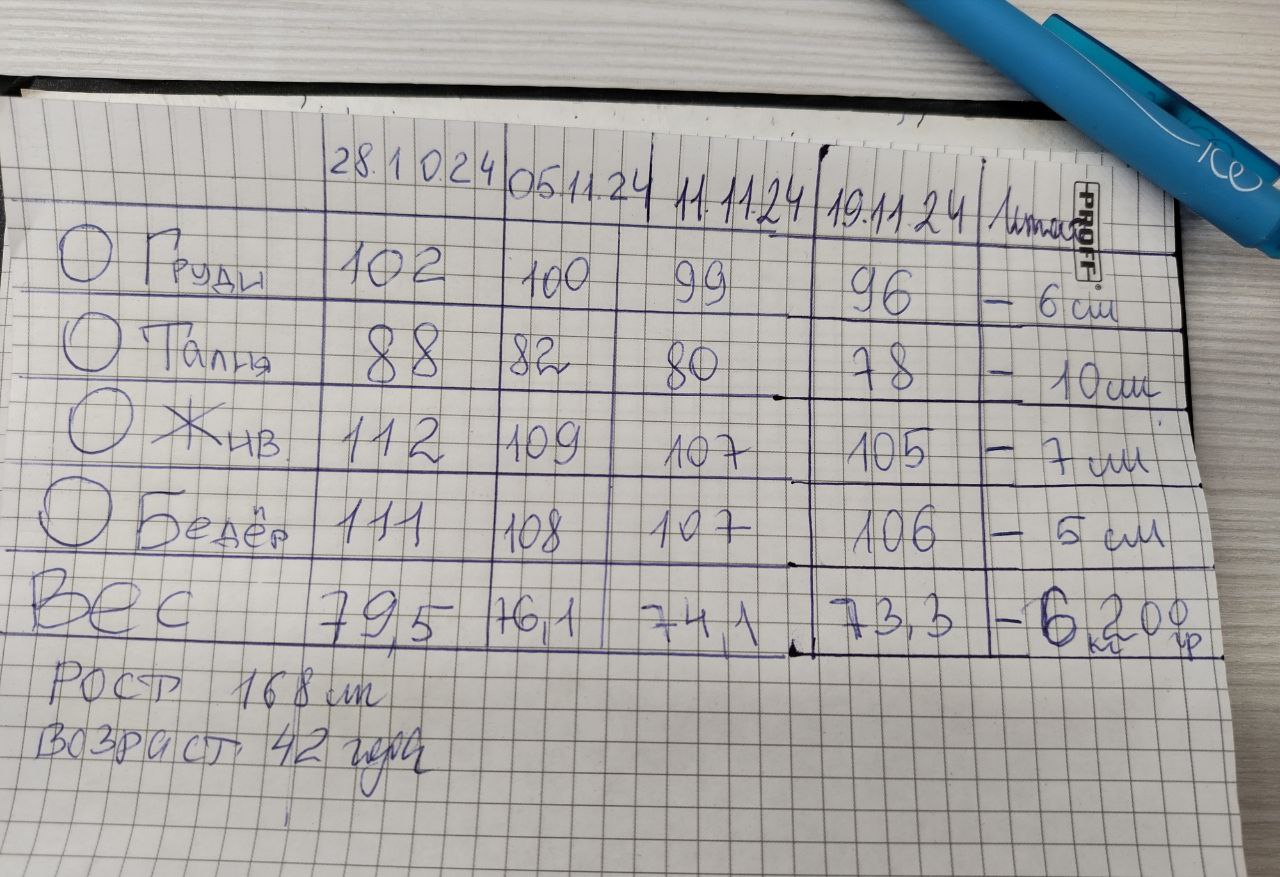 28.10.24 05.11.24 11.11.24 19.11.24 Итог
Груди 102 100 99 96 - 6 см
Талия 88 82 80 78 - 10 см
Жив. 112 109 107 105 - 7 см
Бедёр 111 108 107 106 - 5 см
Вес 79,5 76,1 74,1 73,3 - 6 кг 200 гр
Рост 168 см
Возраст 42 года
PROFF
ice